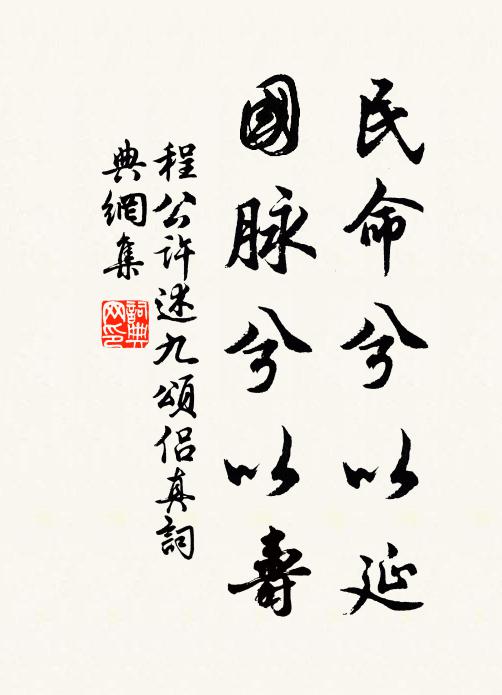 民命兮以延
國脉兮以壽
程公許述九頌侣真詞
典網集
詞典網印